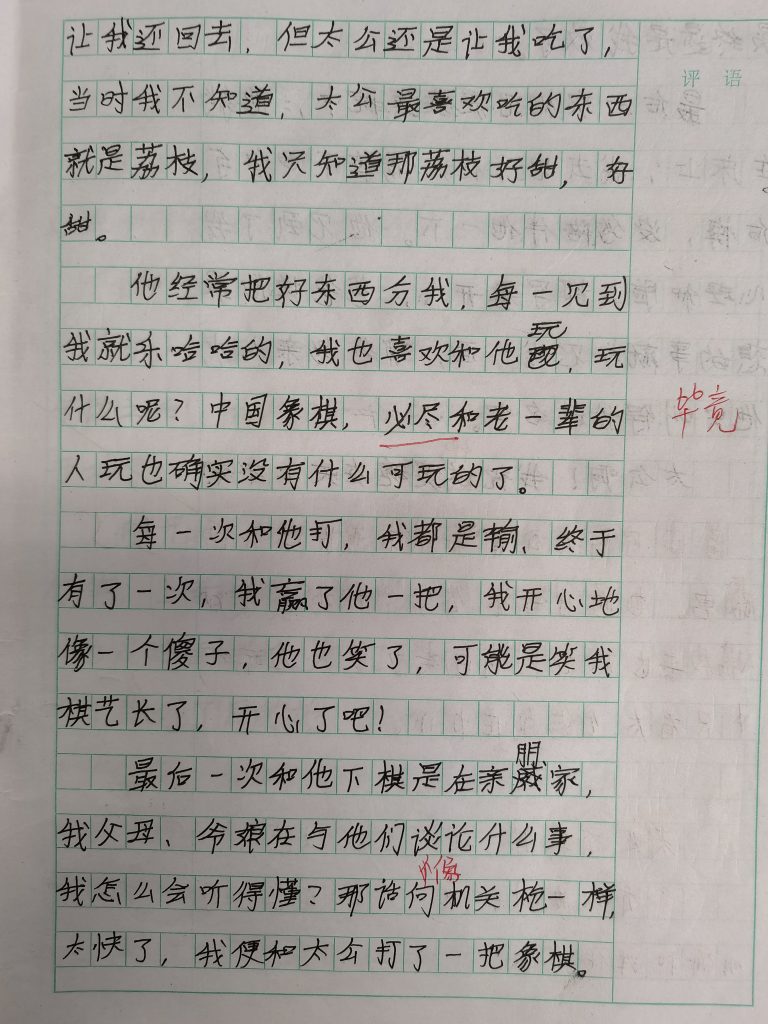 让我还回去,但太公还是让我吃了,
评语
当时我不知道,太公最喜欢吃的东西
就是荔枝,我只知道那荔枝好甜,好
甜。
他经常把好东西分我,每一见到
我就乐哈哈的,我也喜欢和他玩,玩
什么呢?中国象棋,必尽和老一辈的
毕竟
人玩也确实没有什么可玩的了。
每一次和他打,我都是输、终于
有了一次,我赢了他一把,我开心地
像一个傻子,他也笑了,可能是笑我
棋艺长了,开心了吧!
最后一次和他下棋是在亲朋家,
我父母、爷娘在与他们谈论什么事,
像
我怎么会听得懂?那话向机关枪一样,
太快了,我便和太公打了一把象棋。